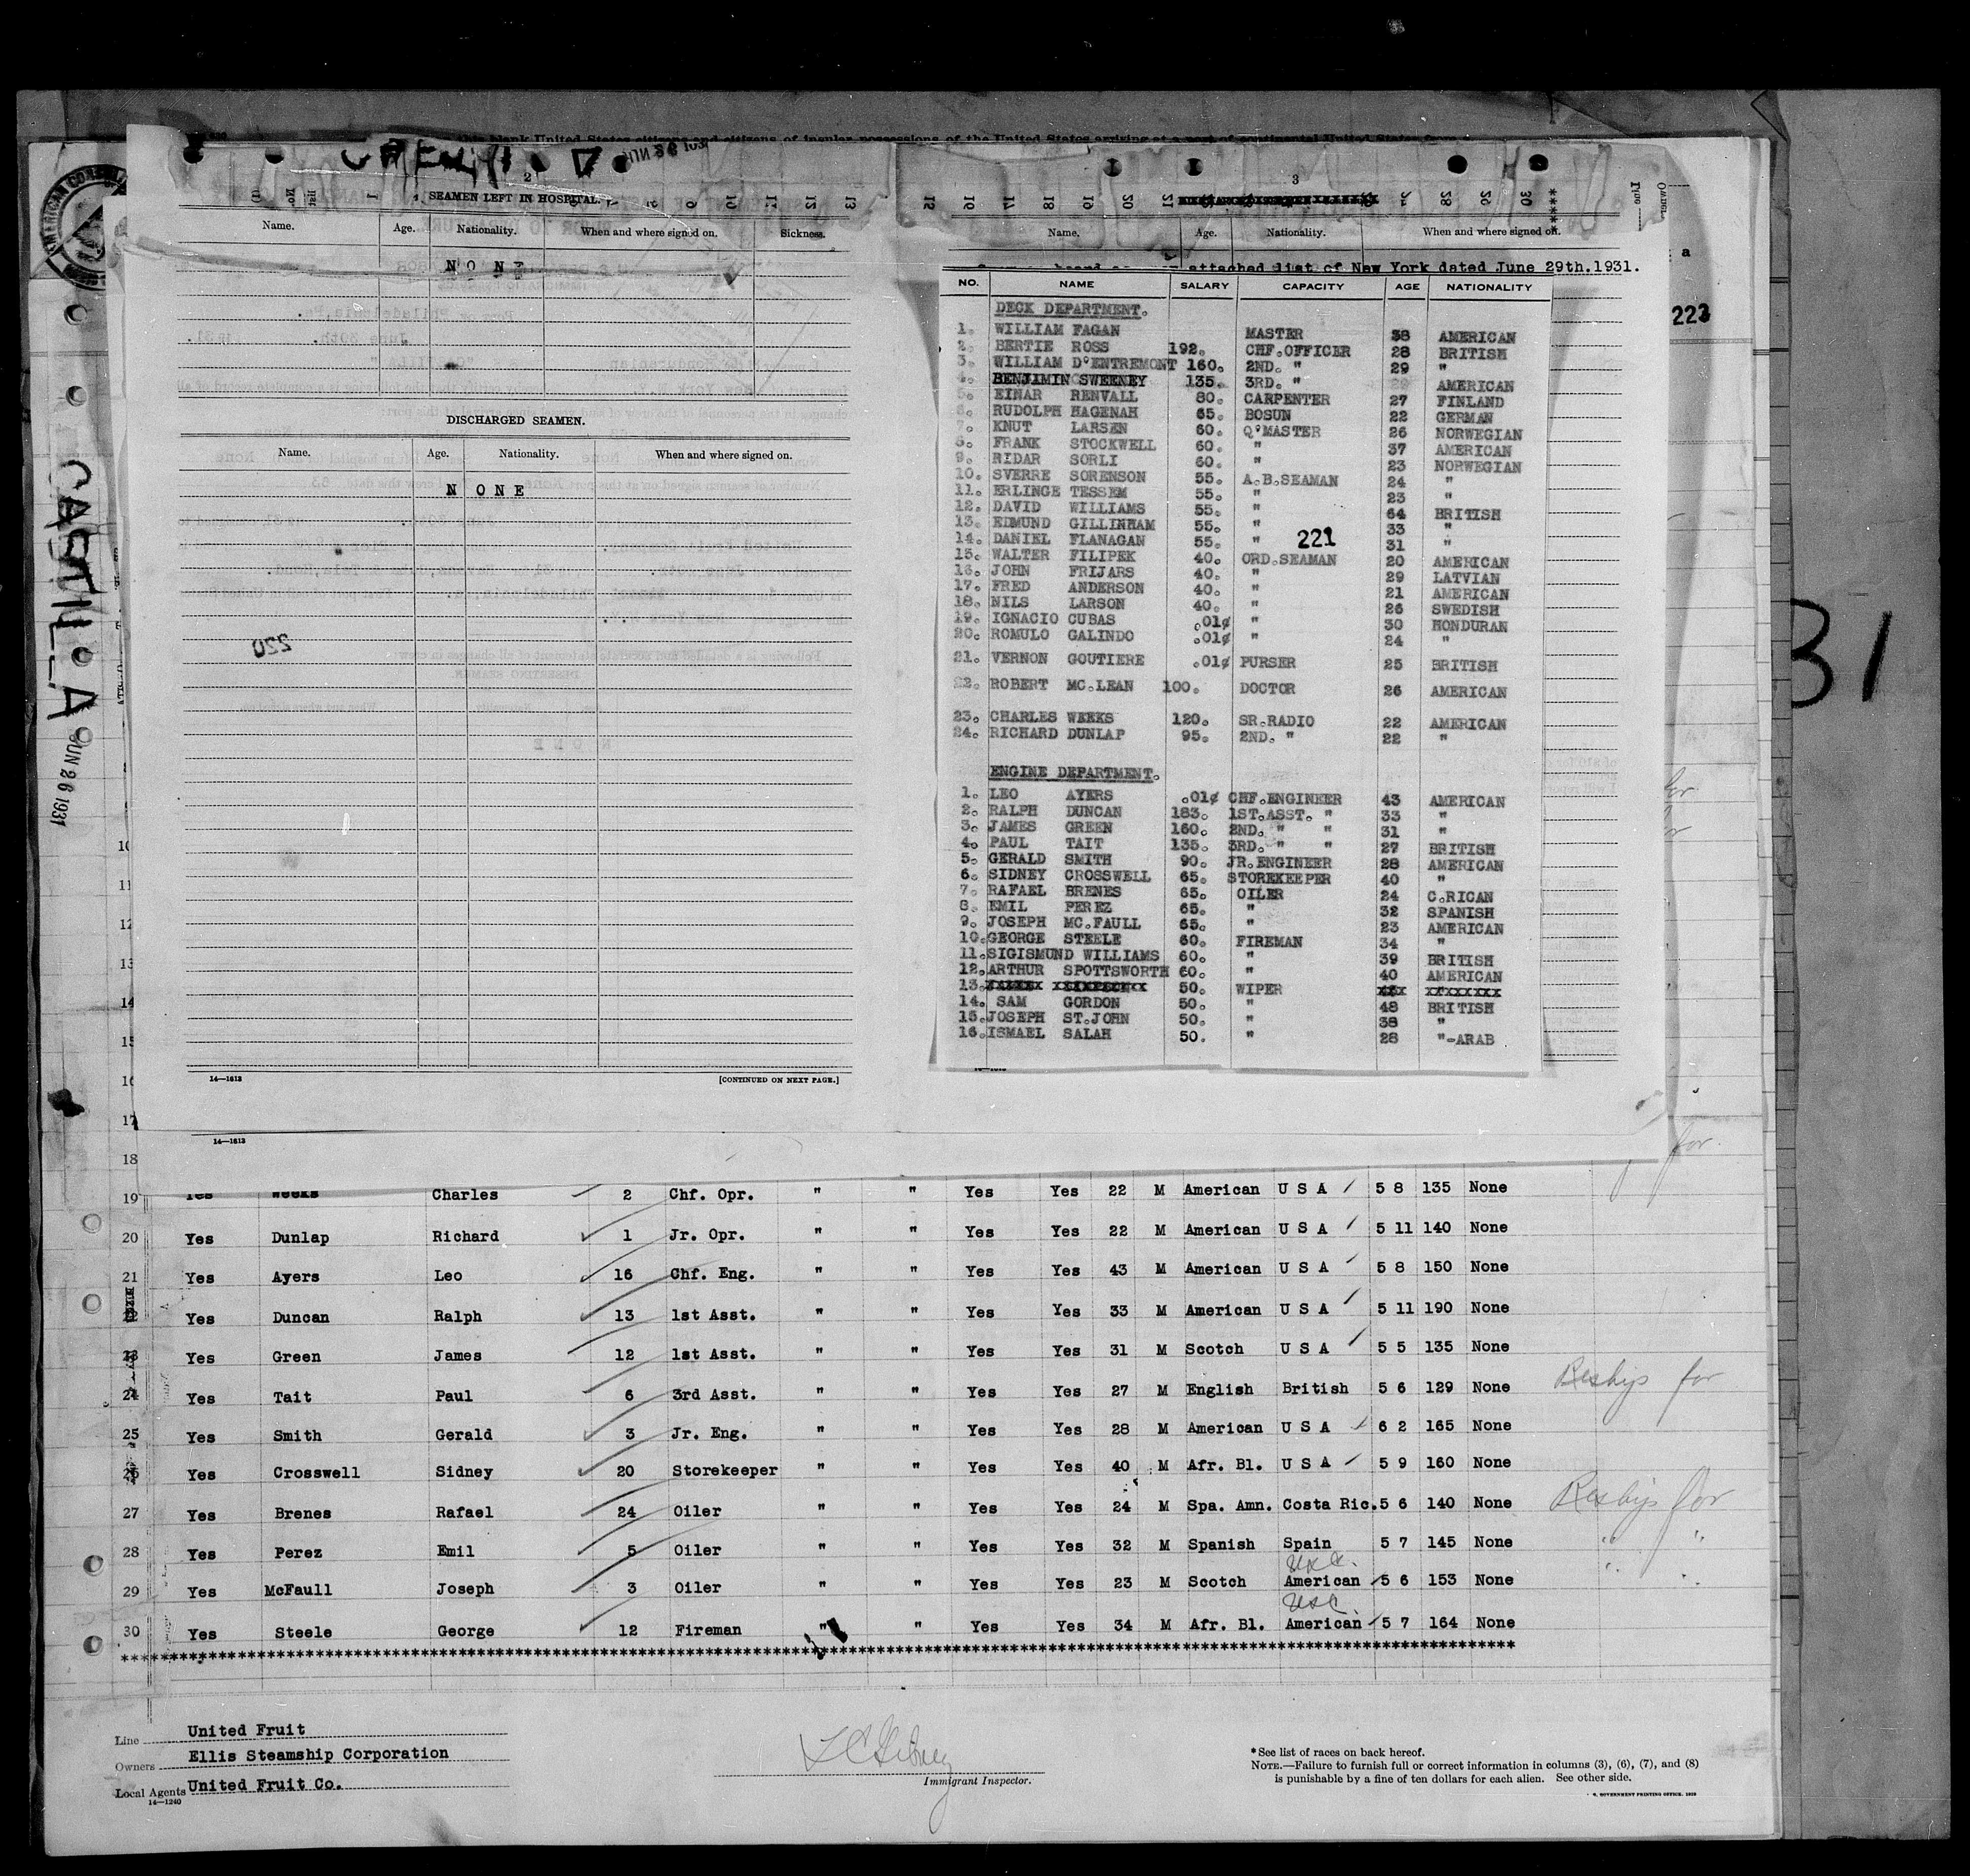 SEAMEN LEFT IN HOSPITAL.
Name. Age. Nationality. When and where signed on. Sickness.
NONE
DISCHARGED SEAMEN.
Name. Age. Nationality. When and where signed on.
NONE
220
14—1613
[CONTINUED ON NEXT PAGE.]
14—1613
3
Name. Age. Nationality. When and where signed on.
attached list of New York dated June 29th.1931.
NO. NAME SALARY CAPACITY AGE NATIONALITY
DECK DEPARTMENT.
1. WILLIAM FAGAN MASTER 38 AMERICAN
2. BERTIE ROSS 192. CHF.OFFICER 28 BRITISH
3. WILLIAM D'ENTREMONT 160. 2ND. " 29 "
BENJIMIN SWEENEY 135. 3RD. " AMERICAN
5. EINAR RENVALL 80. CARPENTER 27 FINLAND
6. RUDOLPH HAGENAH 65. BOSUN 22 GERMAN
7. KNUT LARSEN 60. Q'MASTER 26 NORWEGIAN
8. FRANK STOCKWELL 60. " 37 AMERICAN
9. RIDAR SORLI 60. " 23 NORWEGIAN
10. SVERRE SORENSON 55. A.B.SEAMAN 24 "
11. ERLINGE TESSEM 55. " 23 "
12. DAVID WILLIAMS 55. " 64 BRITISH
13. EDMUND GILLINHAM 55. " 33 "
14. DANIEL FLANAGAN 55. " 221 31 "
15. WALTER FILIPEK 40. ORD.SEAMAN 20 AMERICAN
16. JOHN FRIJARS 40. " 29 LATVIAN
17. FRED ANDERSON 40. " 21 AMERICAN
18. NILS LARSON 40. " 26 SWEDISH
19. IGNACIO CUBAS .01¢ " 30 HONDURAN
20. ROMULO GALINDO .01¢ " 24 "
21. VERNON GOUTIERE .01¢ PURSER 25 BRITISH
22. ROBERT MC.LEAN 100. DOCTOR 26 AMERICAN
23. CHARLES WEEKS 120. SR.RADIO 22 AMERICAN
24. RICHARD DUNLAP 95. 2ND. " 22 "
ENGINE DEPARTMENT.
1. LEO AYERS .01¢ CHF.ENGINEER 43 AMERICAN
2. RALPH DUNCAN 183. 1ST.ASST. " 33 "
3. JAMES GREEN 160. 2ND. " " 31 "
4. PAUL TAIT 135. 3RD. " " 27 BRITISH
5. GERALD SMITH 90. JR.ENGINEER 28 AMERICAN
6. SIDNEY CROSSWELL 65. STOREKEEPER 40 "
7. RAFAEL BRENES 65. OILER 24 C.RICAN
8. EMIL PEREZ 65. " 32 SPANISH
9. JOSEPH MC.FAULL 65. " 23 AMERICAN
10. GEORGE STEELE 60. FIREMAN 34 "
11. SIGISMUND WILLIAMS 60. " 39 BRITISH
12. ARTHUR SPOTTSWORTH 60. " 40 AMERICAN
13. 50. WIPER
14. SAM GORDON 50. " 48 BRITISH
15. JOSEPH ST.JOHN 50. " 38 "
16. ISMAEL SALAH 50. " 28 "-ARAB
223
31
CASTILLA
JUN 26 1931
19 Yes Weeks Charles 2 Chf. Opr. " " Yes Yes 22 M American U S A 5 8 135 None
20 Yes Dunlap Richard 1 Jr. Opr. " " Yes Yes 22 M American U S A 5 11 140 None
21 Yes Ayers Leo 16 Chf. Eng. " " Yes Yes 43 M American U S A 5 8 150 None
22 Yes Duncan Ralph 13 1st Asst. " " Yes Yes 33 M American U S A 5 11 190 None
23 Yes Green James 12 1st Asst. " " Yes Yes 31 M Scotch U S A 5 5 135 None
24 Yes Tait Paul 6 3rd Asst. " " Yes Yes 27 M English British 5 6 129 None Reships for
25 Yes Smith Gerald 3 Jr. Eng. " " Yes Yes 28 M American U S A 6 2 165 None
26 Yes Crosswell Sidney 20 Storekeeper " " Yes Yes 40 M Afr. Bl. U S A 5 9 160 None
27 Yes Brenes Rafael 24 Oiler " " Yes Yes 24 M Spa. Amn. Costa Ric. 5 6 140 None Reships for
28 Yes Perez Emil 5 Oiler " " Yes Yes 32 M Spanish Spain 5 7 145 None " "
29 Yes McFaull Joseph 3 Oiler " " Yes Yes 23 M Scotch American 5 6 153 None
USC
30 Yes Steele George 12 Fireman " " Yes Yes 34 M Afr. Bl. American 5 7 164 None
Line United Fruit
Owners Ellis Steamship Corporation
Local Agents United Fruit Co.
14—1240
Immigrant Inspector.
*See list of races on back hereof.
NOTE.—Failure to furnish full or correct information in columns (3), (6), (7), and (8)
is punishable by a fine of ten dollars for each alien. See other side.